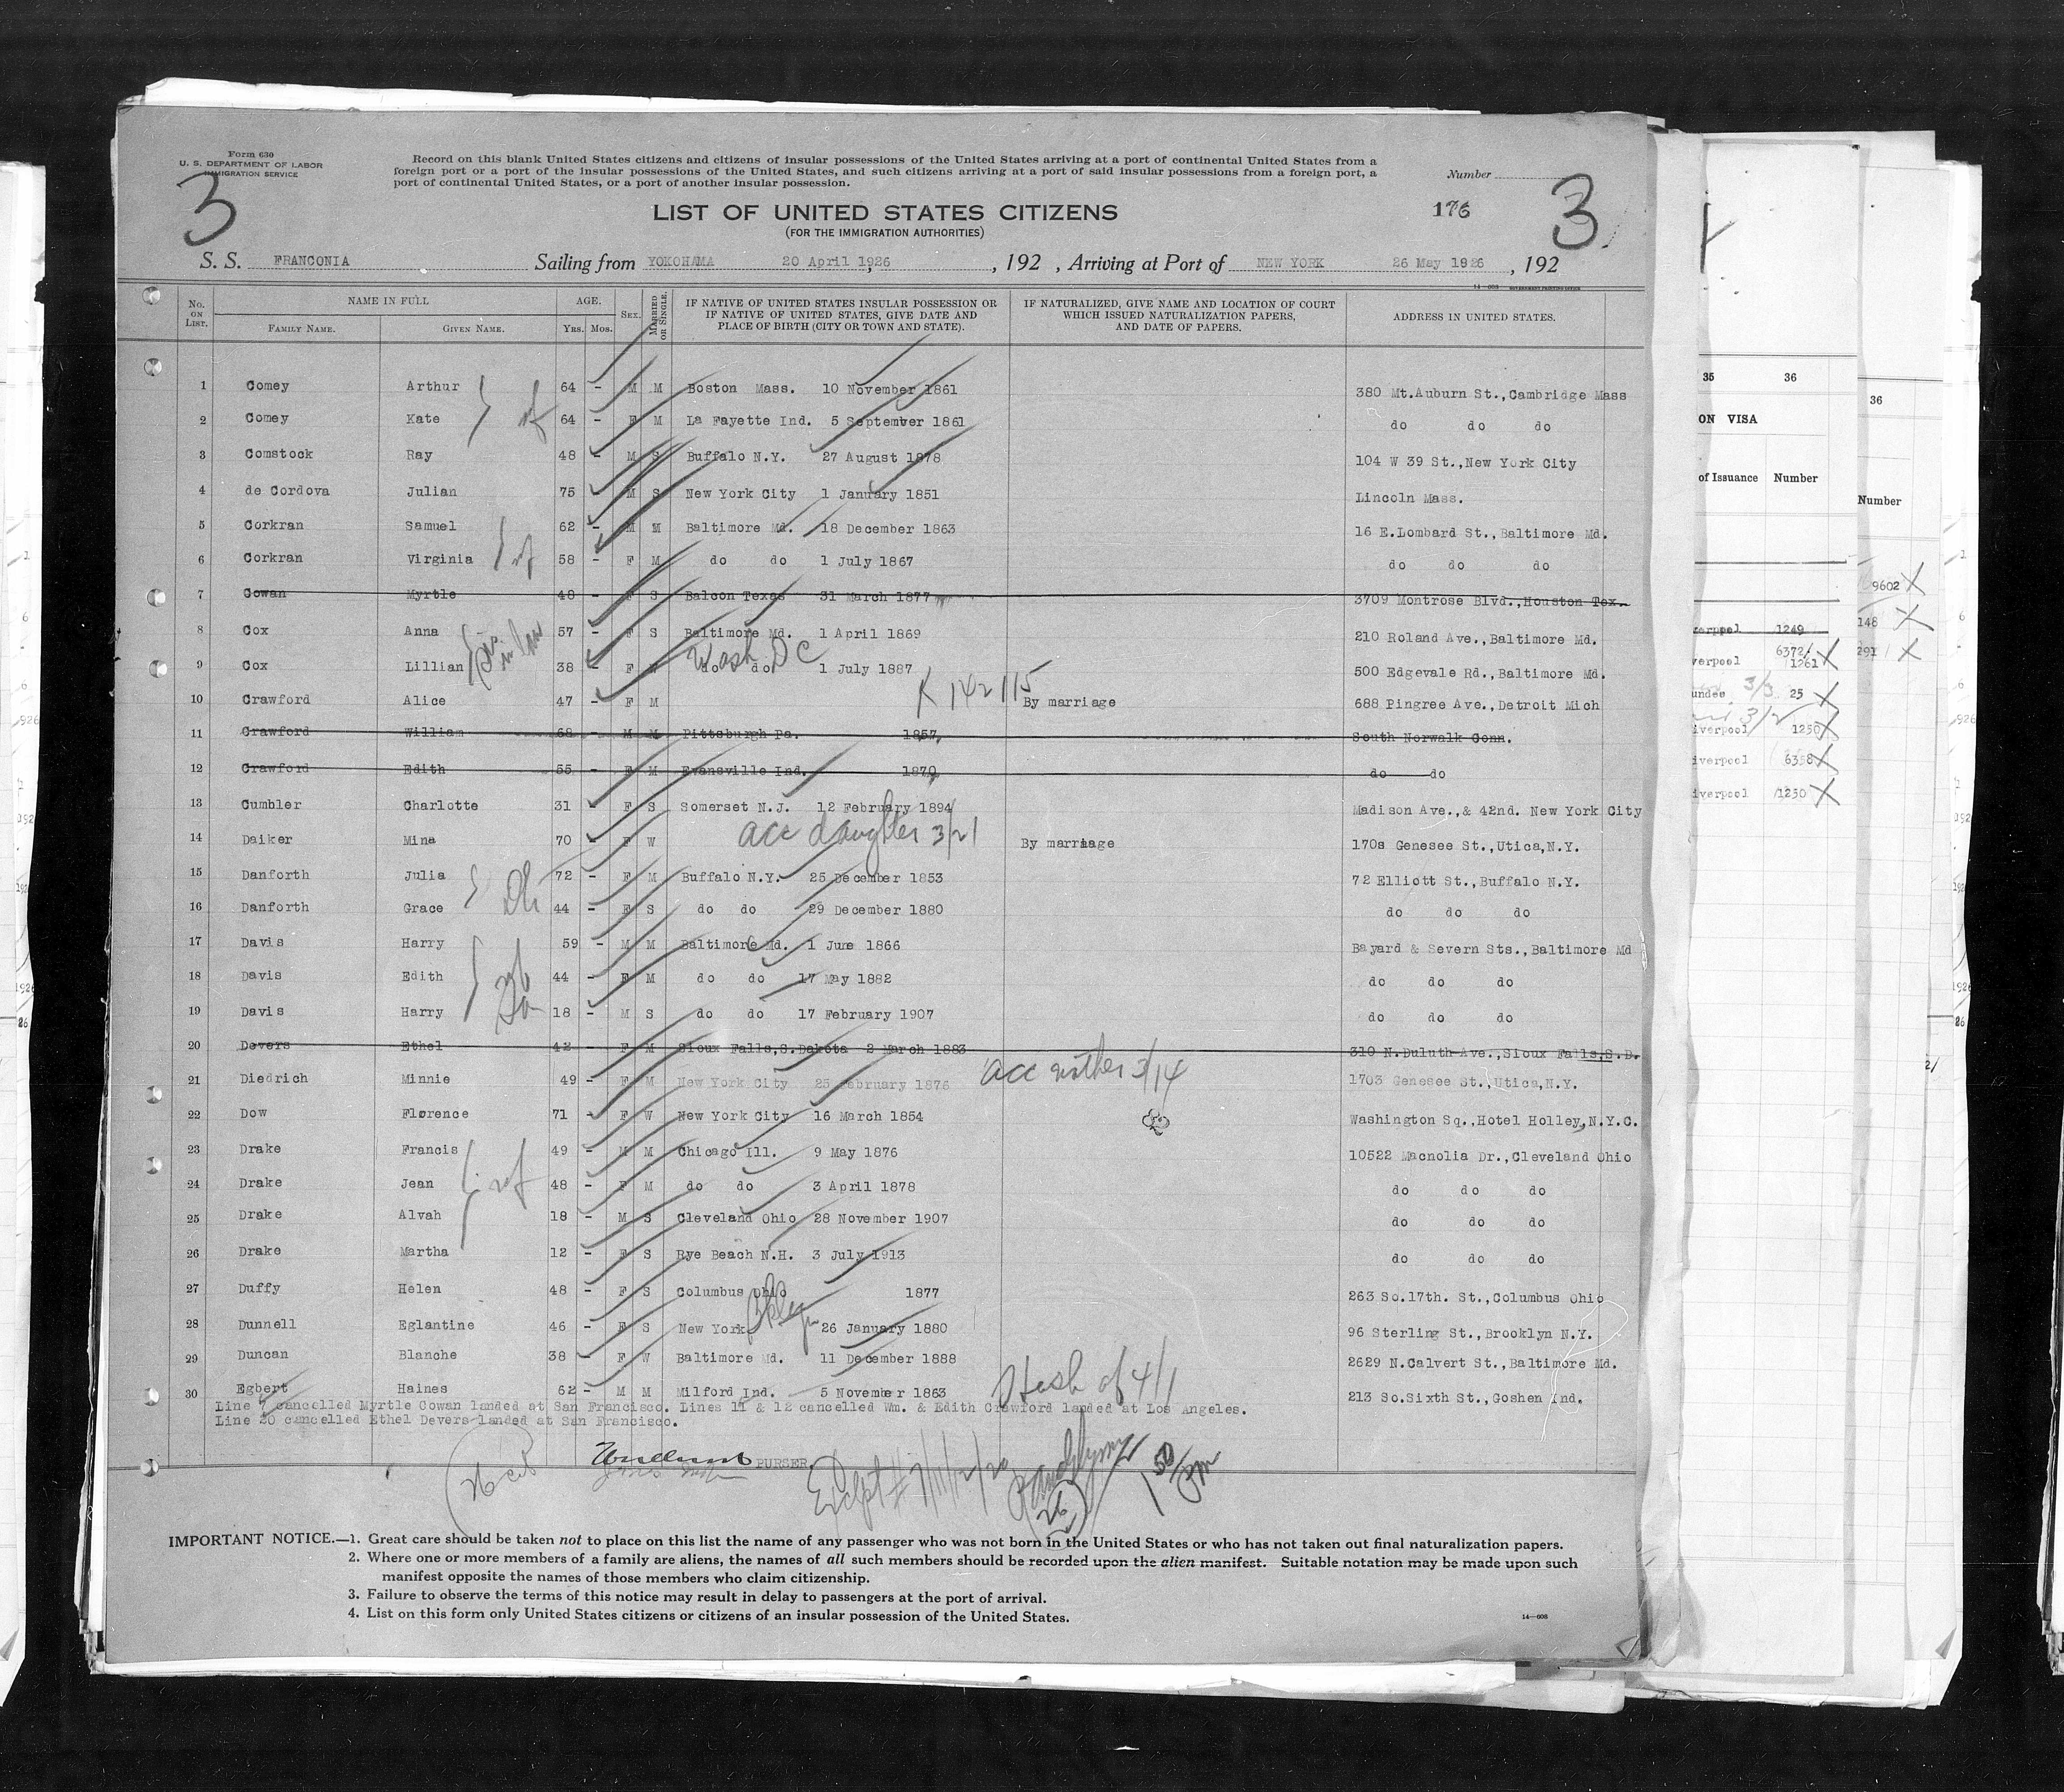 Form 630
U. S. DEPARTMENT OF LABOR
IMMIGRATION SERVICE
Record on this blank United States citizens and citizens of insular possessions of the United States arriving at a port of continental United States from a
foreign port or a port of the insular possessions of the United States, and such citizens arriving at a port of said insular possessions from a foreign port, a
port of continental United States, or a port of another insular possession.
Number
3
LIST OF UNITED STATES CITIZENS
176
3
(FOR THE IMMIGRATION AUTHORITIES)
S. S. FRANCONIA Sailing from YOKOHAMA 20 April 1926, , 192 , Arriving at Port of NEW YORK 26 May 1926 , 192
No. ON LIST. NAME IN FULL FAMILY NAME. GIVEN NAME. AGE. Yrs. Mos. SEX. MARRIED OR SINGLE. IF NATIVE OF UNITED STATES INSULAR POSSESSION OR IF NATIVE OF UNITED STATES, GIVE DATE AND PLACE OF BIRTH (CITY OR TOWN AND STATE). IF NATURALIZED, GIVE NAME AND LOCATION OF COURT WHICH ISSUED NATURALIZATION PAPERS, AND DATE OF PAPERS. ADDRESS IN UNITED STATES.
1 Comey Arthur 64 - M M Boston Mass. 10 November 1861 380 Mt.Auburn St.,Cambridge Mass
2 Comey Kate 64 - F M La Fayette Ind. 5 September 1861 do do do
3 Comstock Ray 48 - M S Buffalo N.Y. 27 August 1878 104 W 39 St.,New York City
4 de Cordova Julian 75 - M S New York City 1 January 1851 Lincoln Mass.
5 Corkran Samuel 62 - M M Baltimore Md. 18 December 1863 16 E.Lombard St.,Baltimore Md.
6 Corkran Virginia 58 - F M do do 1 July 1867 do do do
7 Cowan Myrtle 48 - F S Balcon Texas 31 March 1877 3709 Montrose Blvd.,Houston Tex.
8 Cox Anna 57 - F S Baltimore Md. 1 April 1869 210 Roland Ave.,Baltimore Md.
sis. in law
9 Cox Lillian 38 - F M do do Wash DC 1 July 1887 500 Edgevale Rd.,Baltimore Md.
10 Crawford Alice 47 - F M K 142115 By marriage 688 Pingree Ave.,Detroit Mich
11 Crawford William 68 - M M Pittsburgh Pa. 1857. South Norwalk Conn.
12 Crawford Edith 55 - F M Evansville Ind. 1870. do do
13 Cumbler Charlotte 31 - F S Somerset N.J. 12 February 1894 Madison Ave.,& 42nd. New York City
14 Daiker Mina 70 - F W acc daughter 3/21 By marriage 170s Genesee St.,Utica,N.Y.
15 Danforth Julia 72 - F M Buffalo N.Y. 25 December 1853 72 Elliott St.,Buffalo N.Y.
16 Danforth Grace 44 - F S do do 29 December 1880 do do do
17 Davis Harry 59 - M M Baltimore Md. 1 June 1866 Bayard & Severn Sts.,Baltimore Md
18 Davis Edith 44 - F M do do 17 May 1882 do do do
19 Davis Harry 18 - M S do do 17 February 1907 do do do
20 Devers Ethel 42 - F M Sioux Falls,S.Dakota 2 March 1883 310 N.Duluth Ave.,Sioux Falls,S.D.
21 Diedrich Minnie 49 - F M New York City 25 February 1876 acc mother 3/14 1703 Genesee St.,Utica,N.Y.
22 Dow Florence 71 - F W New York City 16 March 1854 Washington Sq.,Hotel Holley,N.Y.C.
23 Drake Francis 49 - M M Chicago Ill. 9 May 1876 10522 Macnolia Dr.,Cleveland Ohio
24 Drake Jean 48 - F M do do 3 April 1878 do do do
25 Drake Alvah 18 - M S Cleveland Ohio 28 November 1907 do do do
26 Drake Martha 12 - F S Rye Beach N.H. 3 July 1913 do do do
27 Duffy Helen 48 - F S Columbus Ohio 1877 263 So.17th. St.,Columbus Ohio
28 Dunnell Eglantine 46 - F S New York Bklyn 26 January 1880 96 Sterling St.,Brooklyn N.Y.
29 Duncan Blanche 38 - F W Baltimore Md. 11 December 1888 2629 N.Calvert St.,Baltimore Md.
30 Egbert Haines 62 - M M Milford Ind. 5 November 1863 Husb of 4/1 213 So.Sixth St.,Goshen Ind.
Line 7 cancelled Myrtle Cowan landed at San Francisco. Lines 11 & 12 cancelled Wm. & Edith Crawford landed at Los Angeles.
Line 20 cancelled Ethel Devers landed at San Francisco.
PURSER.
# 7/11/12/20
26
IMPORTANT NOTICE.—1. Great care should be taken not to place on this list the name of any passenger who was not born in the United States or who has not taken out final naturalization papers.
2. Where one or more members of a family are aliens, the names of all such members should be recorded upon the alien manifest. Suitable notation may be made upon such
manifest opposite the names of those members who claim citizenship.
3. Failure to observe the terms of this notice may result in delay to passengers at the port of arrival.
4. List on this form only United States citizens or citizens of an insular possession of the United States.
14—608
35 36
ON VISA
of Issuance Number
1249
6372
verpool 1261 X
undee 3/3 25 X
iverpool 1250 X
iverpool 6358 X
iverpool 1250 X
36
Number
9602 X
148 X
291 X